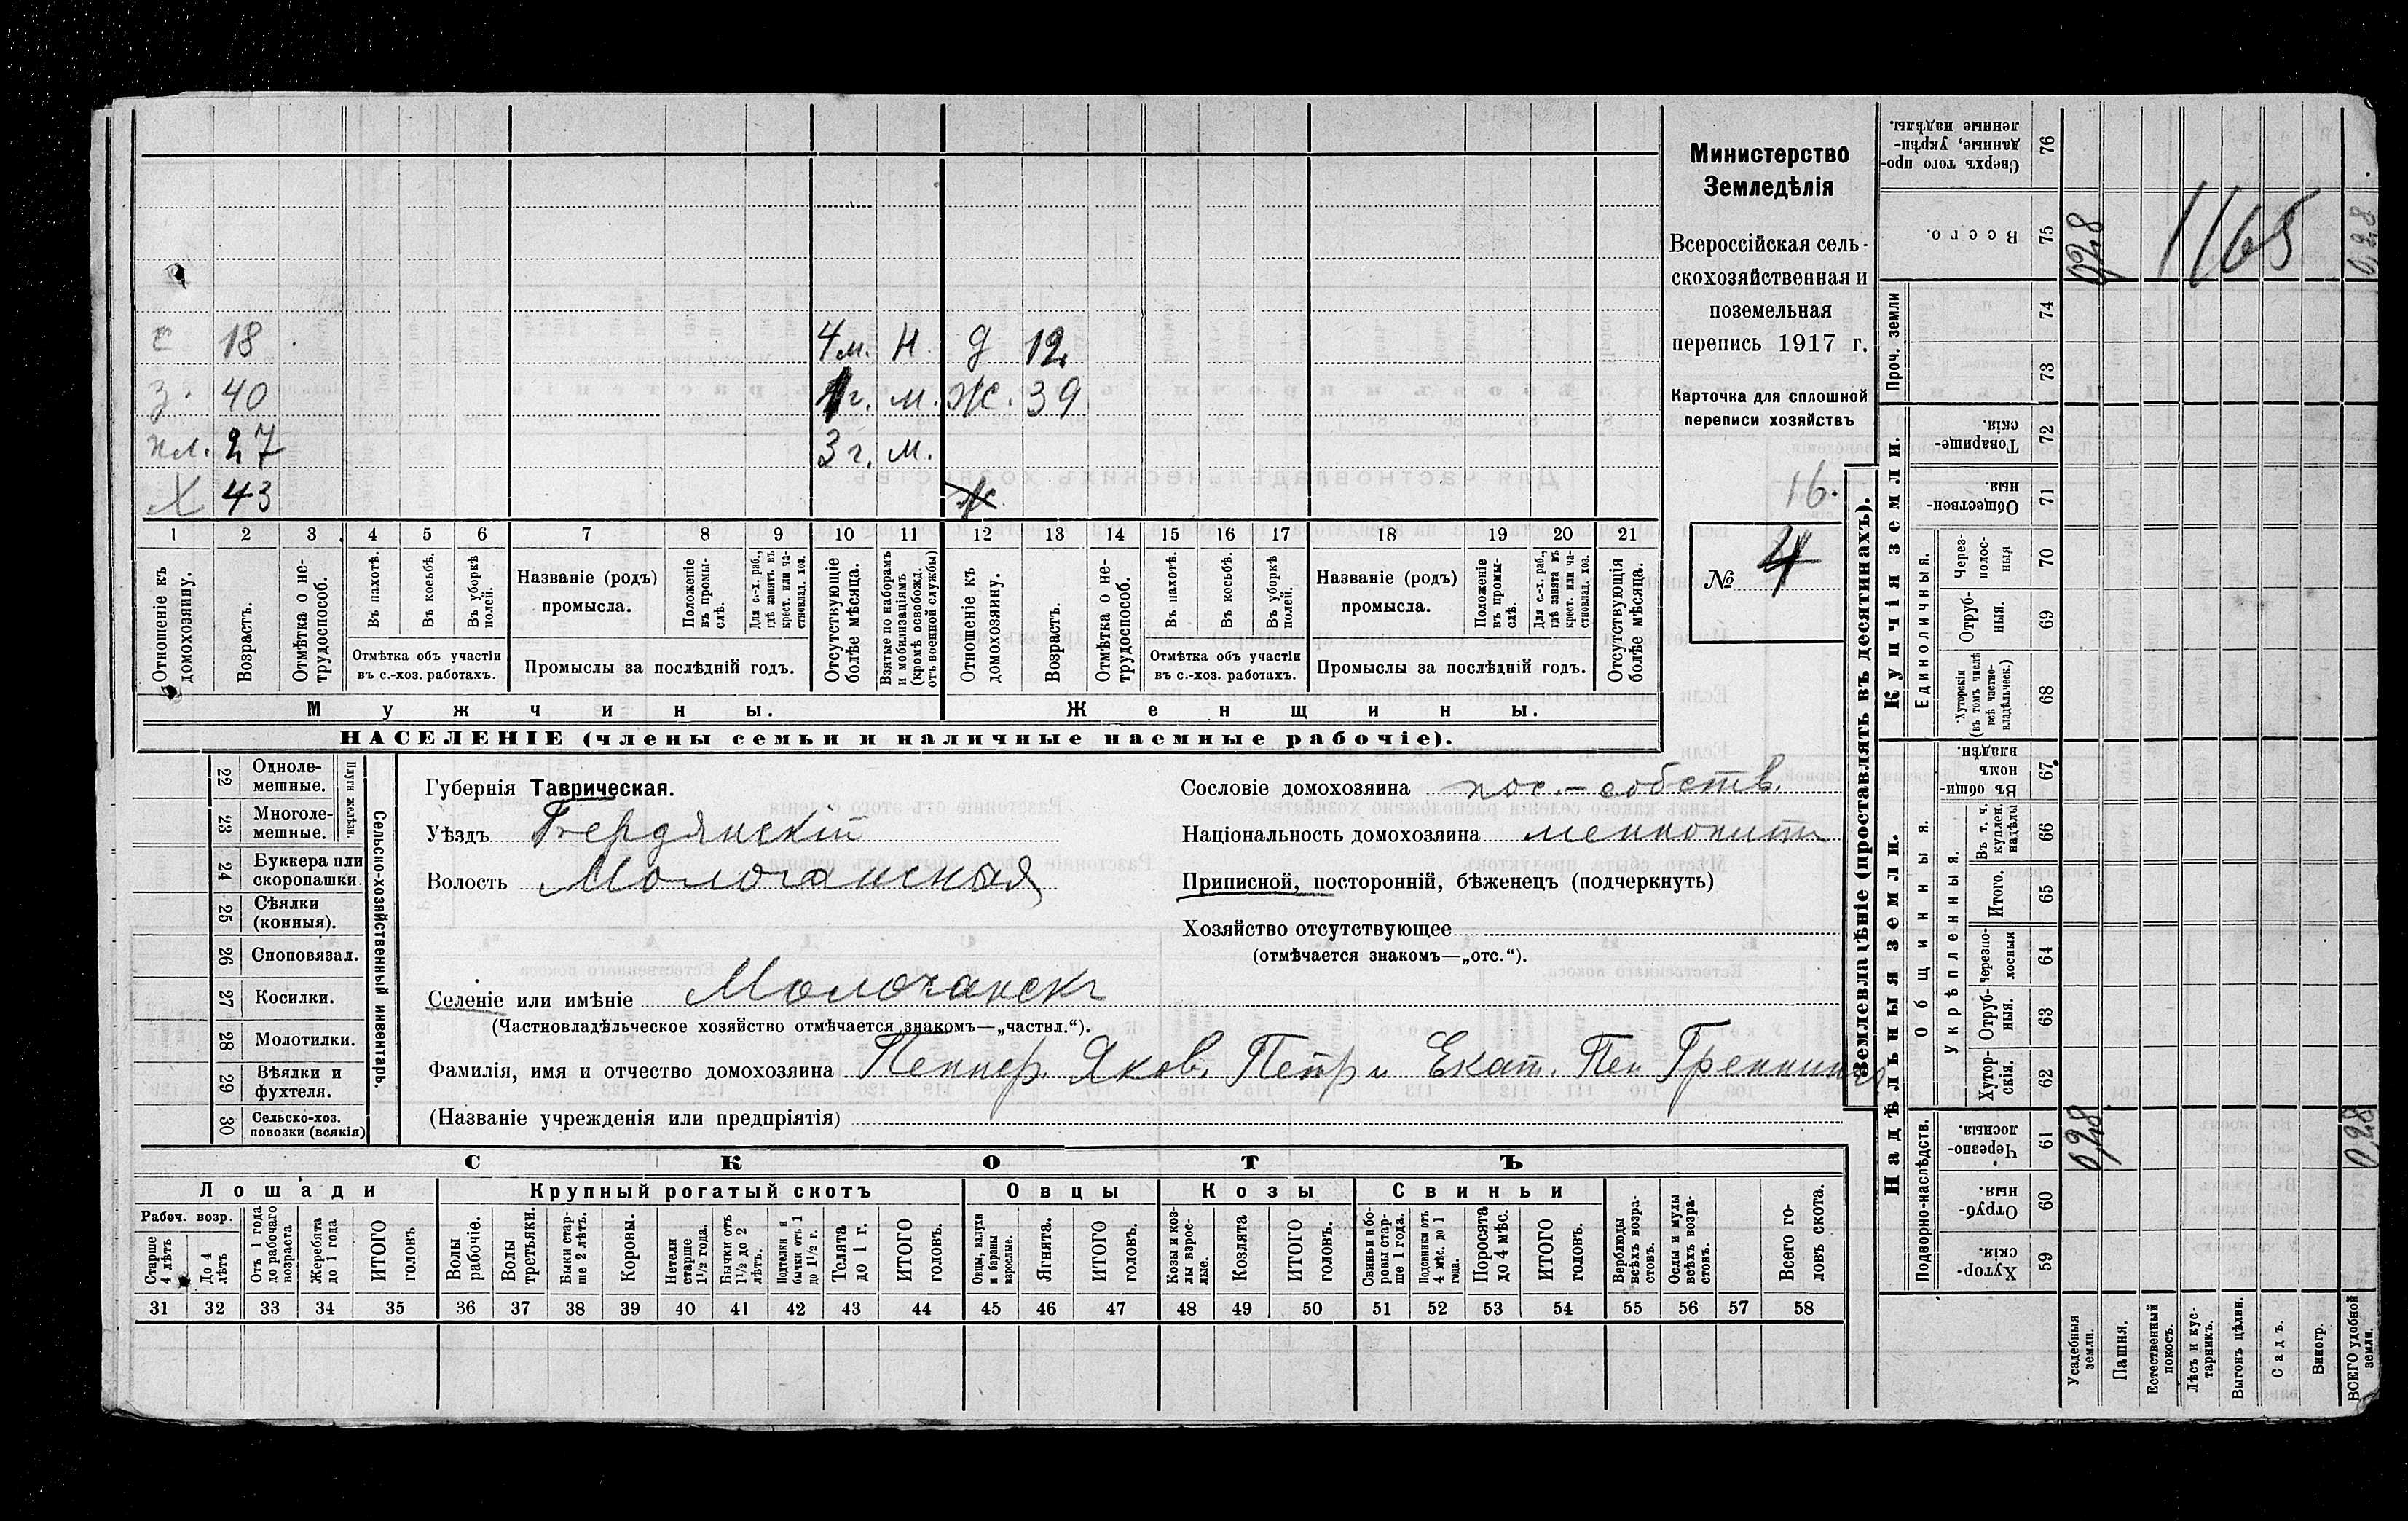 с 18 4 м. Н. д 12
з. 40 1 г. м. Ж. 39
пл. 27 3 г. м.
Х 43
1 2 3 4 5 6 7 8 9 10 11 12 13 14 15 16 17 18 19 20 21
Отношеніе къ домохозяину.
Возрастъ.
Отмѣтка о не-
трудоспособ.
Въ пахотѣ.
Въ косьбѣ.
Въ уборкѣ
полей.
Отмѣтка объ участіи
въ с.-хоз. работахъ.
Названіе (родъ)
промысла.
Положеніе
въ промы-
слѣ.
Для с.-х. раб.,
гдѣ занятъ въ
крест. или ча-
стновлад. хоз.
Промыслы за послѣдній годъ.
Отсутствующіе
болѣе мѣсяца.
Взятые по наборамъ
и мобилизаціямъ
(кромѣ освобожд.
отъ военной службы)
Отношеніе къ
домохозяину.
Возрастъ.
Отмѣтка о не-
трудоспособ.
Въ пахотѣ.
Въ косьбѣ.
Въ уборкѣ
полей.
Отмѣтка объ участіи
въ с.-хоз. работахъ.
Названіе (родъ)
промысла.
Положеніе
въ промы-
слѣ.
Для с.-х. раб.,
гдѣ занята въ
крест. или ча-
стновлад. хоз.
Промыслы за послѣдній годъ.
Отсутствующія
болѣе мѣсяца.
Мужчины.
Женщины.
НАСЕЛЕНІЕ (члены семьи и наличные наемные рабочіе).
Министерство
Земледѣлія
Всероссійская сель-
скохозяйственная и
поземельная
перепись 1917 г.
Карточка для сплошной
переписи хозяйствъ
16.
№ 4
22 Одноле-
мешные.
23 Многоле-
мешные.
Плуги желѣзн.
24 Буккера или
скоропашки.
25 Сѣялки
(конныя).
26 Сноповязал.
27 Косилки.
28 Молотилки.
29 Вѣялки и
фухтеля.
30 Сельско-хоз.
повозки (всякія)
Сельско-хозяйственный инвентарь.
Губернія Таврическая.
Уѣздъ Бердянскій
Волость Молочанская
Селеніе или имѣніе Молочанскъ
(Частновладѣльческое хозяйство отмѣчается знакомъ—„частвл.“).
Фамилія, имя и отчество домохозяина Пеннер. Яков. Петр и Екат.
(Названіе учрежденія или предпріятія)
Сословіе домохозяина пос.-собств.
Національность домохозяина меннонитъ
Приписной, посторонній, бѣженецъ (подчеркнуть)
Хозяйство отсутствующее
(отмѣчается знакомъ—„отс.“).
СКОТЪ
Лошади
Крупный рогатый скотъ
Овцы
Козы
Свиньи
Рабоч. возр.
Старше
4 лѣтъ
До 4
лѣтъ
Отъ 1 года
до рабочаго
возраста
Жеребята
до 1 года
ИТОГО
головъ
Волы
рабочіе.
Волы
третьяки.
Быки стар-
ше 2 лѣтъ.
Коровы.
Нетели
старше
1½ года.
Бычки отъ
1½ до 2
лѣтъ.
Подтелки и
бычки отъ 1
до 1½ г.
Телята
до 1 г.
ИТОГО
головъ.
Овцы, валухи
и бараны
взрослые.
Ягнята.
ИТОГО
головъ.
Козы и коз-
лы взрос-
лые.
Козлята
ИТОГО
головъ.
Свиньи и бо-
ровы стар-
ше 1 года.
Подсвинки отъ
4 мѣс. до 1
года.
Поросята
до 4 мѣс.
ИТОГО
головъ.
Верблюды
всѣхъ возра-
стовъ.
Ослы и мулы
всѣхъ возра-
стовъ.
Всего го-
ловъ скота.
31 32 33 34 35 36 37 38 39 40 41 42 43 44 45 46 47 48 49 50 51 52 53 54 55 56 57 58
Землевладѣніе (проставлять въ десятинахъ).
Надѣльныя земли.
Купчія земли.
Проч. земли
Подворно-наслѣдств.
Общинныя.
Укрѣпленныя.
Единоличныя.
Сверхъ того про-
данные, укрѣп-
ленные надѣлы.
76
Всего.
75
74
73
Товарище-
скія.
72
Обществен-
ныя.
71
Через-
полос-
ныя
70
Отруб-
ныя.
69
Хуторскія
(въ томъ числѣ
всѣ частно-
владѣльческ.)
68
Въ общин-
номъ
владѣн.
67
Въ т. ч.
куплен.
надѣлы
66
Итого.
65
Черезпо-
лосныя
64
Отруб-
ныя.
63
Хутор-
скія.
62
Черезпо-
лосныя.
61
Отруб-
ныя.
60
Хутор-
скія.
59
Усадебныя
земли.
Пашня.
Естественный
покосъ.
Лѣсъ и кус-
тарникъ.
Выгонъ цѣлин.
Садъ.
Виногр.
ВСЕГО удобной
земли.
0,28
1165
0,28
0,28
0,28